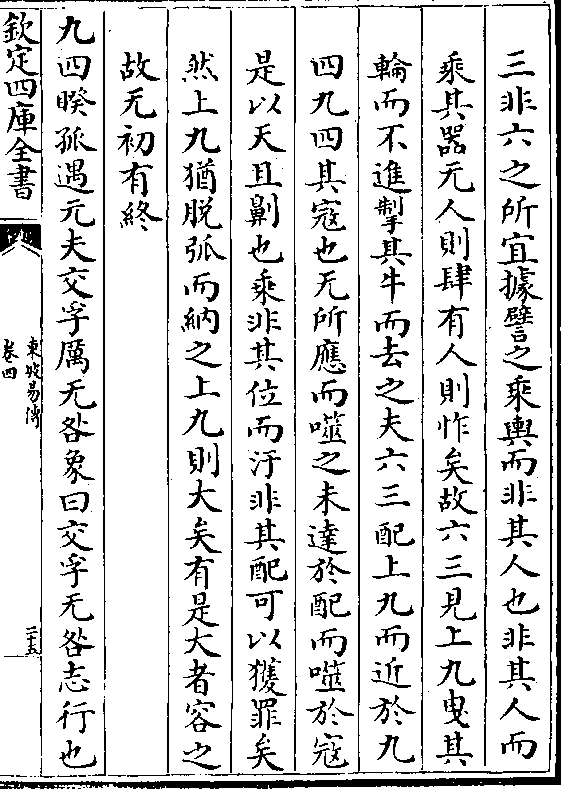 三非六之所宜據譬之乘輿而非其人也非其人而
乘其器无人則肆有人則怍矣故六三見上九曳其
輪而不進掣其牛而去之夫六三配上九而近於九
四九四其寇也无所應而噬之未達於配而噬於寇
是以天且劓也乘非其位而汙非其配可以獲罪矣
然上九猶脱弧而納之上九則大矣有是大者容之
故无初有終
九四睽孤遇元夫交孚厲无咎象曰交孚无咎志行也
欽定四庫全書
東坡易傳
卷四
三十五